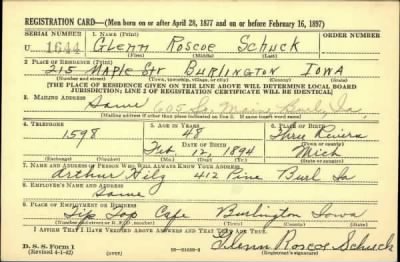 REGISTRATION CARD—(Men born on or after April 28, 1877 and on or before February 16, 1897)
SERIAL NUMBER 1. NAME (Print) ORDER NUMBER
U 1644 Glenn Roscoe Schuck
(First) (Middle) (Last)
2. PLACE OF RESIDENCE (Print)
215 Maple Str Burlington Iowa
(Number and street) (Town, township, village, or city) (County) (State)
[THE PLACE OF RESIDENCE GIVEN ON THE LINE ABOVE WILL DETERMINE LOCAL BOARD
JURISDICTION; LINE 2 OF REGISTRATION CERTIFICATE WILL BE IDENTICAL]
3. MAILING ADDRESS
Same 605 So. Ia.
[Mailing address if other than place indicated on line 2. If same insert word same]
4. TELEPHONE 5. AGE IN YEARS 6. PLACE OF BIRTH
1598 48 Three Rivers
DATE OF BIRTH (Town or county)
Feb 12, 1894 Mich
(Exchange) (Number) (Mo.) (Day) (Yr.) (State or country)
7. NAME AND ADDRESS OF PERSON WHO WILL ALWAYS KNOW YOUR ADDRESS
Arthur Hilz 412 Pine Burl Ia
8. EMPLOYER'S NAME AND ADDRESS
Same
9. PLACE OF EMPLOYMENT OR BUSINESS
Tip Top Cafe Burlington Iowa
(Number and street or R. F. D. number) (Town) (County) (State)
I AFFIRM THAT I HAVE VERIFIED ABOVE ANSWERS AND THAT THEY ARE TRUE.
D. S. S. Form 1
(Revised 4-1-42) (over) Glenn Roscoe Schuck
(Registrant's signature)